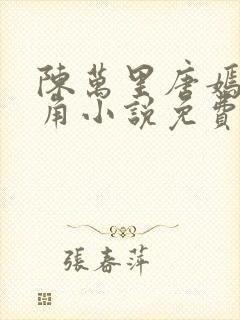 陳萬里唐嫣
角小說免費
張春萍